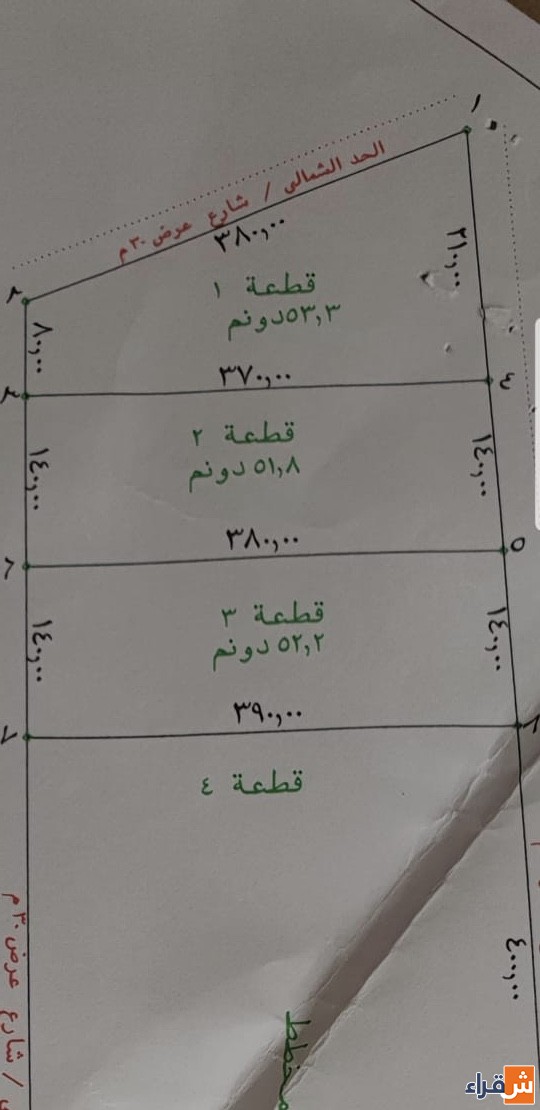 ١
الحد الشمالي / شارع عرض ٣٠م
٣٨٠,٠٠
٢١٠,٠٠
قطعة ١
٥٣,٣دونم
٢
٨٠,٠٠
٣٧٠,٠٠
٣
٤
قطعة ٢
٥١,٨ دونم
١٤٠,٠٠
١٤٠,٠٠
٣٨٠,٠٠
٥
٨
قطعة ٣
٥٢,٢ دونم
١٤٠,٠٠
١٤٠,٠٠
٣٩٠,٠٠
٦
٧
قطعة ٤
/ شارع عرض ٣٠م
٤٠٠,٠٠
مخطط
شقراء